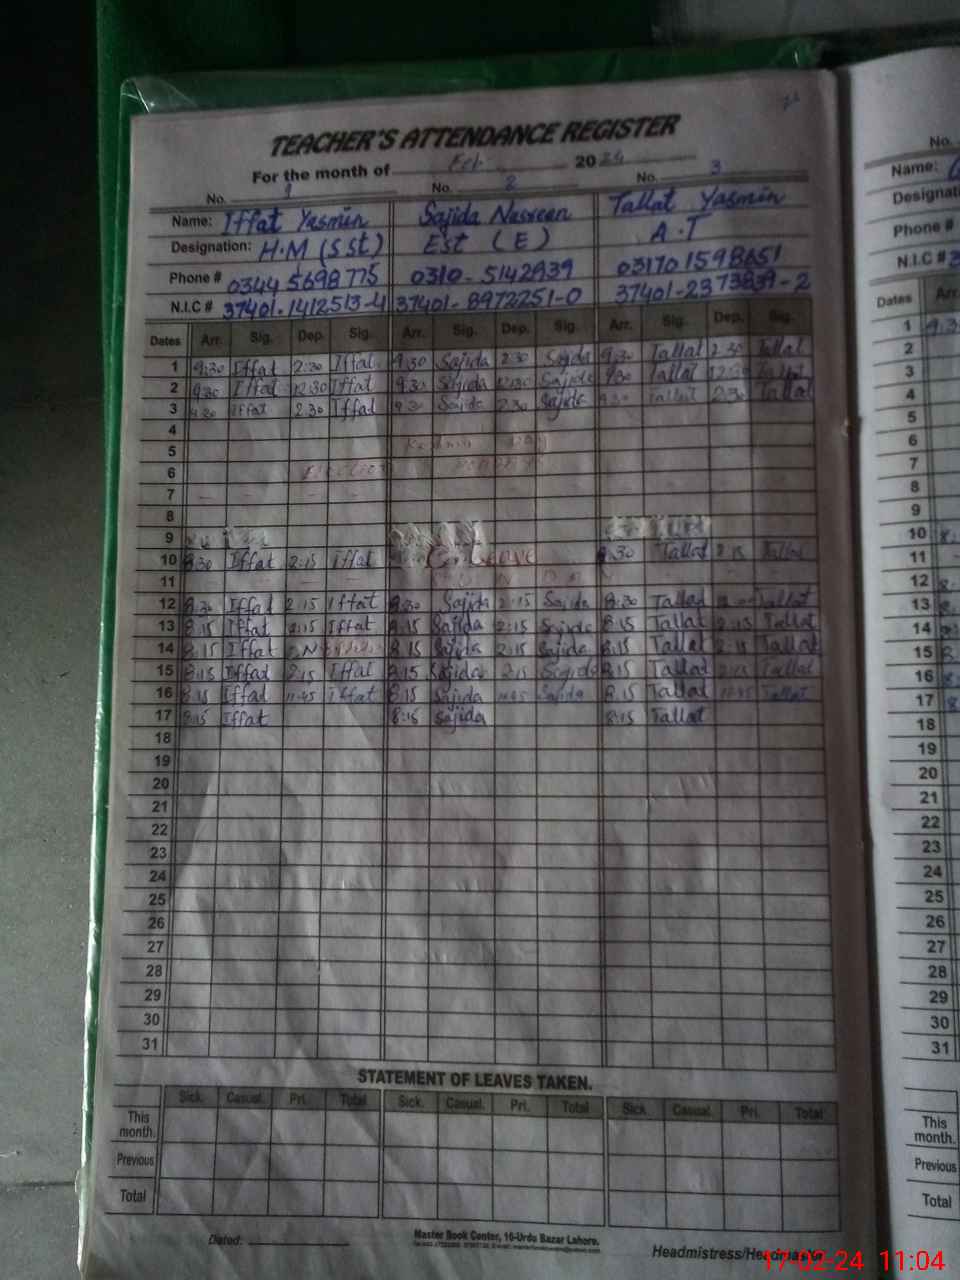 TEACHER'S ATTENDANCE REGISTER
For the month of Feb 2024
No. 1 No. 2 No. 3
Name: Iffat Yasmin Sajida Nasreen Tallat Yasmin
Designation: H.M (S st) Est (E) A.T
Phone # 0344 5698775 0310-5142939 031701598651
N.I.C # 37401-1412513-4 37401-8972251-0 37401-2373839-2
Dates Arr. Sig. Dep. Sig. Arr. Sig. Dep. Sig. Arr. Sig. Dep. Sig.
1 9:30 Iffat 2:30 Iffat 9:30 Sajida 2:30 Sajida 9:30 Tallat 2:30 Tallat
2 9:30 Iffat 12:30 Iffat 9:30 Sajida 12:30 Sajida 9:30 Tallat 12:30 Tallat
3 9:30 Iffat 2:30 Iffat 9:30 Sajida 2:30 Sajida 9:30 Tallat 2:30 Tallat
4
5 Kashmir Day
6 Election
7
8
9
10 8:30 Iffat 2:15 Iffat Leave 8:30 Tallat 2:15 Tallat
11 S U N D A Y
12 8:30 Iffat 2:15 Iffat 8:30 Sajida 2:15 Sajida 8:30 Tallat Tallat
13 8:15 Iffat 2:15 Iffat 8:15 Sajida 2:15 Sajida 8:15 Tallat 2:15 Tallat
14 8:15 Iffat 8:15 Sajida 2:15 Sajida 8:15 Tallat 2:15 Tallat
15 8:15 Iffat 2:15 Iffat 8:15 Sajida 2:15 Sajida 8:15 Tallat 2:15 Tallat
16 8:15 Iffat 11:45 Iffat 8:15 Sajida 11:45 Sajida 8:15 Tallat 11:45 Tallat
17 8:15 Iffat 8:15 Sajida 8:15 Tallat
18
19
20
21
22
23
24
25
26
27
28
29
30
31
STATEMENT OF LEAVES TAKEN.
Sick. Casual. Pri. Total Sick. Casual. Pri. Total Sick. Casual. Pri. Total
This month.
Previous
Total
Dated:
Master Book Center, 16-Urdu Bazar Lahore.
Headmistress/Headmaster
No.
Name:
Designati
Phone #
N.I.C # 3
Dates Arr.
1 9:3
2
3
4
5
6
7
8
9
10 8:
11
12 8:
13 8:
14
15 8
16 8
17 8
18
19
20
21
22
23
24
25
26
27
28
29
30
31
This month.
Previous
Total
17-02-24 11:04